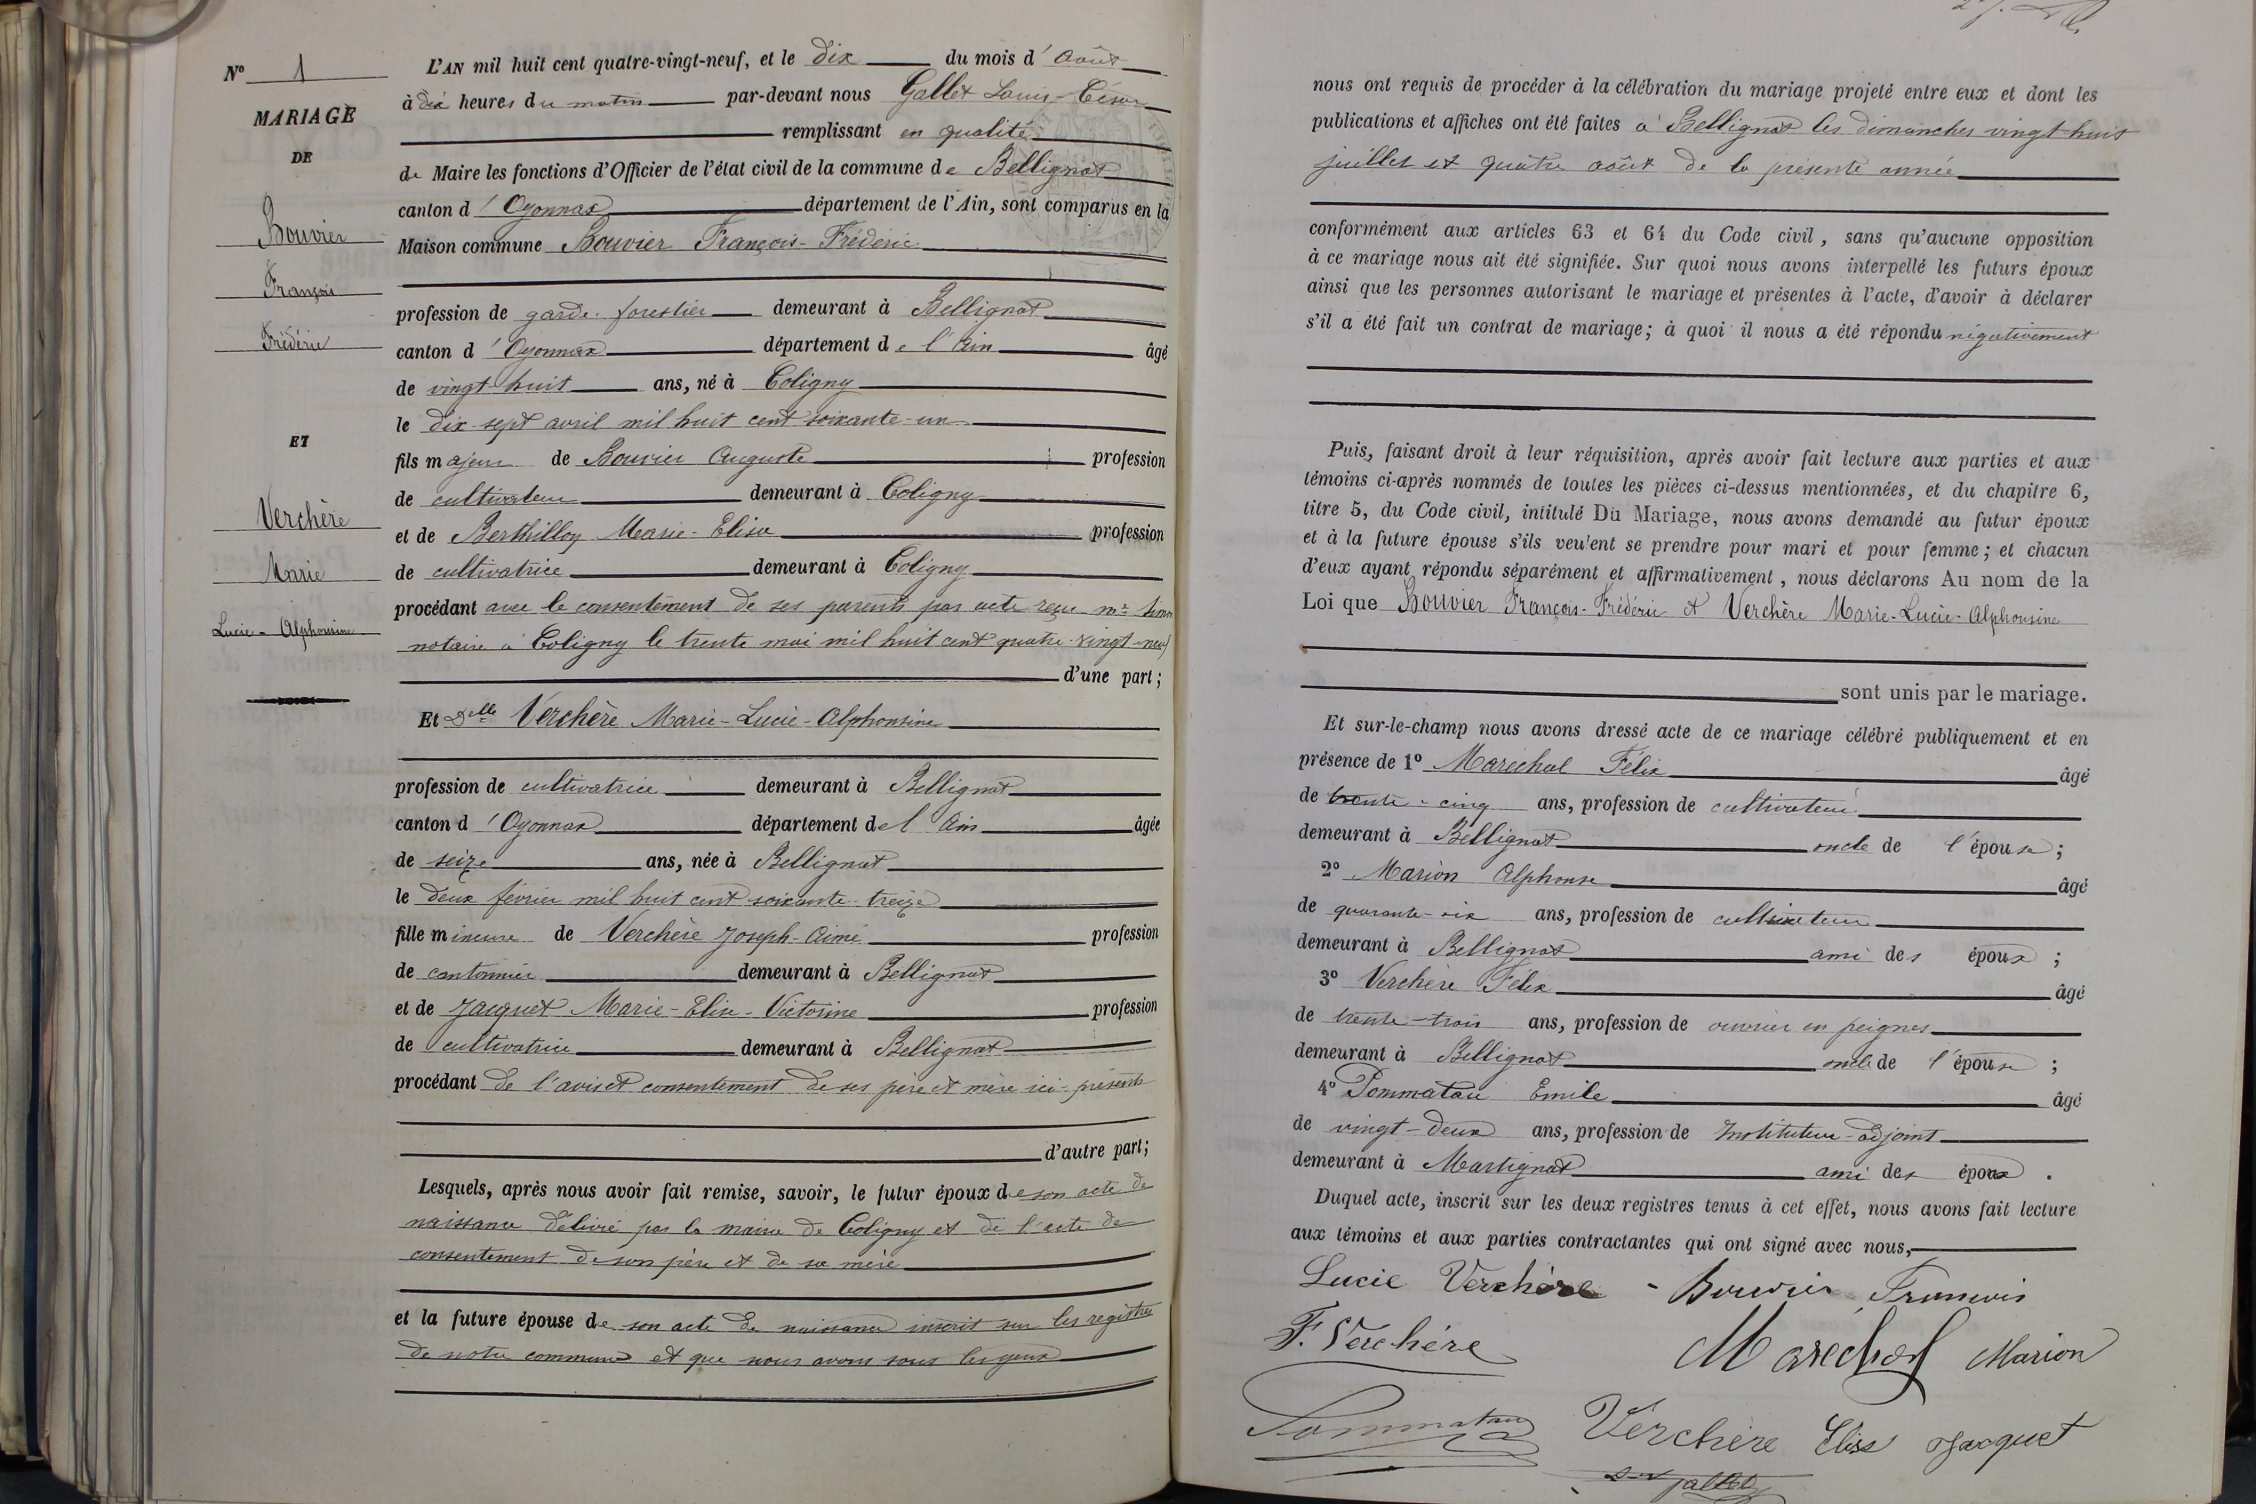 Nº 1
MARIAGE
DE
Bouvier
François
Frédéric
ET
Verchère
Marie
Lucie - Alphonsine
L'AN mil huit cent quatre-vingt-neuf, et le dix du mois d'août
à dix heures du matin par-devant nous Gallet Louis-César
remplissant en qualité
de Maire les fonctions d'Officier de l'état civil de la commune de Bellignat
canton d'Oyonnax département de l'Ain, sont comparus en la
Maison commune Bouvier François-Frédéric
profession de garde-forestier demeurant à Bellignat
canton d'Oyonnax département de l'Ain âgé
de vingt-huit ans, né à Coligny
le dix-sept avril mil huit cent soixante-un
fils majeur de Bouvier Auguste profession
de cultivateur demeurant à Coligny
et de Berthilloy Marie-Elisa profession
de cultivatrice demeurant à Coligny
procédant avec le consentement de ses parents par acte reçu Mr
notaire à Coligny le trente mai mil huit cent quatre-vingt-neuf
d'une part;
Et Delle Verchère Marie-Lucie-Alphonsine
profession de cultivatrice demeurant à Bellignat
canton d'Oyonnax département de l'Ain âgée
de seize ans, née à Bellignat
le deux février mil huit cent soixante-treize
fille mineure de Verchère Joseph-Aimé profession
de cantonnier demeurant à Bellignat
et de Jacquet Marie-Elise-Victorine profession
de cultivatrice demeurant à Bellignat
procédant de l'avis et consentement de ses père et mère ici présents
d'autre part;
Lesquels, après nous avoir fait remise, savoir, le futur époux de son acte de
naissance délivré par la mairie de Coligny et de l'acte de
consentement de son père et de sa mère
et la future épouse de son acte de naissance inscrit sur les registres
de notre commune et que nous avons sous les yeux
nous ont requis de procéder à la célébration du mariage projeté entre eux et dont les
publications et affiches ont été faites à Bellignat les dimanches vingt-huit
juillet et quatre août de la présente année
conformément aux articles 63 et 64 du Code civil, sans qu'aucune opposition
à ce mariage nous ait été signifiée. Sur quoi nous avons interpellé les futurs époux
ainsi que les personnes autorisant le mariage et présentes à l'acte, d'avoir à déclarer
s'il a été fait un contrat de mariage; à quoi il nous a été répondu négativement
Puis, faisant droit à leur réquisition, après avoir fait lecture aux parties et aux
témoins ci-après nommés de toutes les pièces ci-dessus mentionnées, et du chapitre 6,
titre 5, du Code civil, intitulé Du Mariage, nous avons demandé au futur époux
et à la future épouse s'ils veulent se prendre pour mari et pour femme; et chacun
d'eux ayant répondu séparément et affirmativement, nous déclarons Au nom de la
Loi que Bouvier François-Frédéric et Verchère Marie-Lucie-Alphonsine
sont unis par le mariage.
Et sur-le-champ nous avons dressé acte de ce mariage célébré publiquement et en
présence de 1º Maréchal Félix âgé
de trente-cinq ans, profession de cultivateur
demeurant à Bellignat oncle de l'épouse;
2º Marion Alphonse âgé
de quarante-six ans, profession de cultivateur
demeurant à Bellignat ami des époux;
3º Verchère Félix âgé
de trente-trois ans, profession de ouvrier en peignes
demeurant à Bellignat oncle de l'épouse;
4º Pommatau Emile âgé
de vingt-deux ans, profession de Instituteur-adjoint
demeurant à Martignat ami des époux.
Duquel acte, inscrit sur les deux registres tenus à cet effet, nous avons fait lecture
aux témoins et aux parties contractantes qui ont signé avec nous,
Lucie Verchère - Bouvier François
F. Verchère Marechal Marion
Pommatau Verchère Elise Jacquet
Gallet